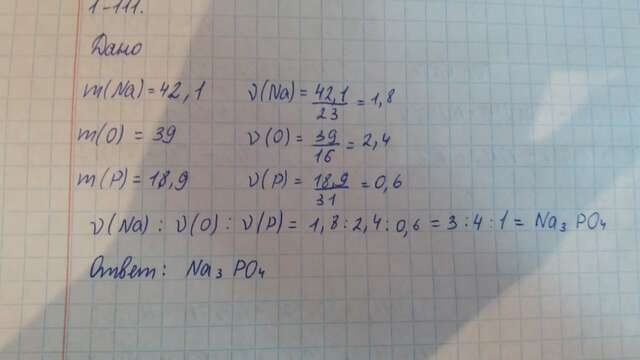 1-111.
Дано
m(Na) = 42,1 ν(Na) = 42,1/23 = 1,8
m(O) = 39 ν(O) = 39/16 = 2,4
m(P) = 18,9 ν(P) = 18,9/31 = 0,6
ν(Na) : ν(O) : ν(P) = 1,8 : 2,4 : 0,6 = 3 : 4 : 1 = Na₃PO₄
Ответ: Na₃PO₄